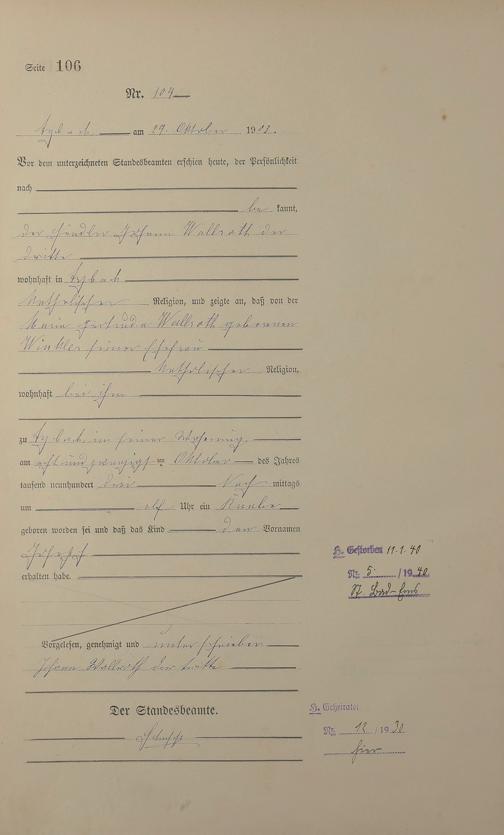 Seite 106
Nr. 104
am 29. Oktober 1903.
Vor dem unterzeichneten Standesbeamten erschien heute, der Persönlichkeit
nach
be kannt,
der Händler Johann Wallroth der
dritte
wohnhaft in
katholischer Religion, und zeigte an, daß von der
Maria Gertruda Wallroth geborenen
Winkler seiner Ehefrau
katholischer Religion,
wohnhaft bei ihm
zu in seiner Wohnung
am acht und zwanzigsten Oktober des Jahres
tausend neunhundert drei Nach mittags
um elf Uhr ein Knabe
geboren worden sei und daß das Kind den Vornamen
Joseph
erhalten habe.
Vorgelesen, genehmigt und unterschrieben
Johann Wallroth der dritte
Der Standesbeamte.
H. Gestorben 11.1.40
Nr. 5 /1940
St. Bad-Ems
H. Geheiratet
Nr. 12 /1930
hier